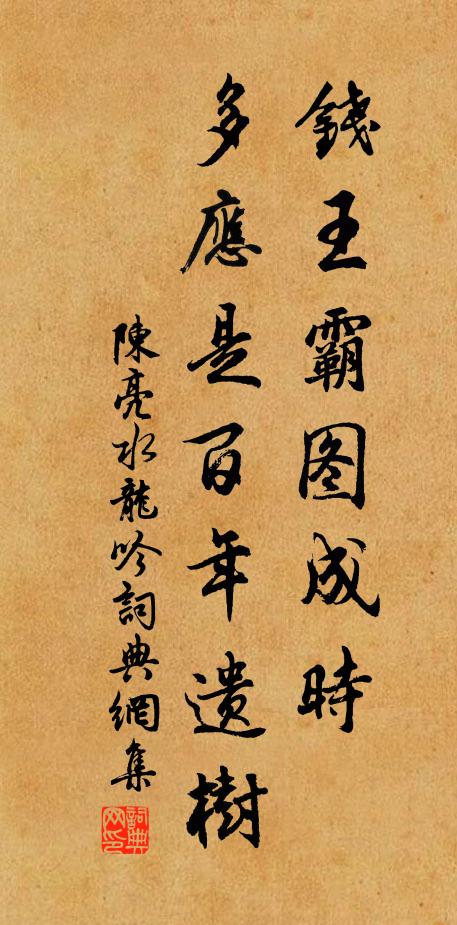 錢王霸图成時
多應是百年遺樹
陳亮水龍吟詞典網集
詞典网印